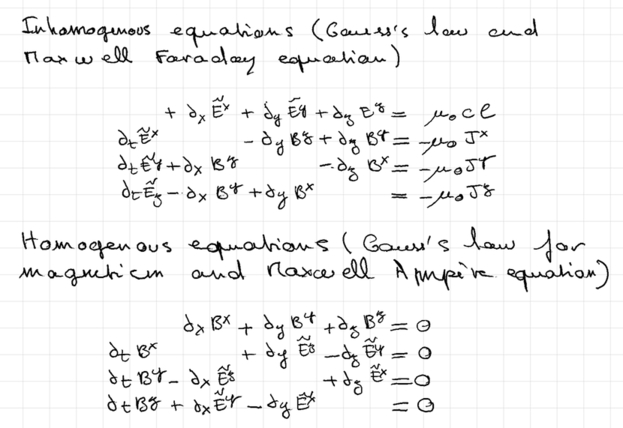 Inhomogenous equations (Gauss's law and
Maxwell Faraday equation)
+ ∂x Ẽˣ + ∂y Ẽʸ + ∂z Eᶻ = μ₀cρ
∂t Ẽˣ - ∂y Bᶻ + ∂z Bʸ = -μ₀ Jˣ
∂t Ẽʸ + ∂x Bᶻ - ∂z Bˣ = -μ₀ Jʸ
∂t Ẽz - ∂x Bʸ + ∂y Bˣ = -μ₀ Jᶻ
Homogenous equations (Gauss's law for
magnetism and Maxwell Ampère equation)
∂x Bˣ + ∂y Bʸ + ∂z Bᶻ = 0
∂t Bˣ + ∂y Ẽᶻ - ∂z Ẽʸ = 0
∂t Bʸ - ∂x Ẽᶻ + ∂z Ẽˣ = 0
∂t Bᶻ + ∂x Ẽʸ - ∂y Ẽˣ = 0